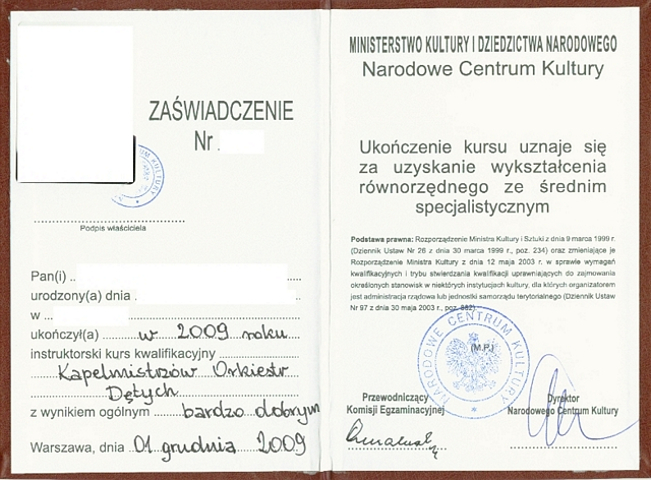 ZAŚWIADCZENIE
Nr
Podpis właściciela
Pan(i)
urodzony(a) dnia
w
ukończył(a) w 2009 roku
instruktorski kurs kwalifikacyjny
Kapelmistrzów Orkiestr
Dętych
z wynikiem ogólnym bardzo dobrym
Warszawa, dnia 01 grudnia 2009
MINISTERSTWO KULTURY I DZIEDZICTWA NARODOWEGO
Narodowe Centrum Kultury
Ukończenie kursu uznaje się
za uzyskanie wykształcenia
równorzędnego ze średnim
specjalistycznym
Podstawa prawna: Rozporządzenie Ministra Kultury i Sztuki z dnia 9 marca 1999 r.
(Dziennik Ustaw Nr 26 z dnia 30 marca 1999 r., poz. 234) oraz zmieniające je
Rozporządzenie Ministra Kultury z dnia 12 maja 2003 r. w sprawie wymagań
kwalifikacyjnych i trybu stwierdzania kwalifikacji uprawniających do zajmowania
określonych stanowisk w niektórych instytucjach kultury, dla których organizatorem
jest administracja rządowa lub jednostki samorządu terytorialnego (Dziennik Ustaw
Nr 97 z dnia 30 maja 2003 r., poz. 882)
NARODOWE CENTRUM KULTURY
(M.P.)
Przewodniczący
Komisji Egzaminacyjnej
Dyrektor
Narodowego Centrum Kultury